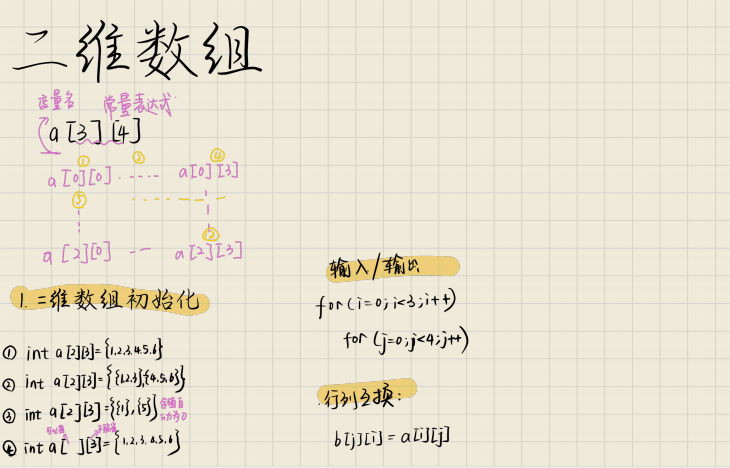 二维数组
变量名 常量表达式
a[3][4]
① ② ④
a[0][0] ----- a[0][3]
⑤
②
a[2][0] -- a[2][3]
1.二维数组初始化
① int a[2][3]={1,2,3,4,5,6}
② int a[2][3]={{1,2,3},{4,5,6}}
③ int a[2][3]={{1},{5}} 余值自动为0
④ int a[ ][3]={1,2,3,4,5,6}
输入/输出
for(i=0;i<3;i++)
for(j=0;j<4;j++)
行列互换:
b[j][i]=a[i][j]